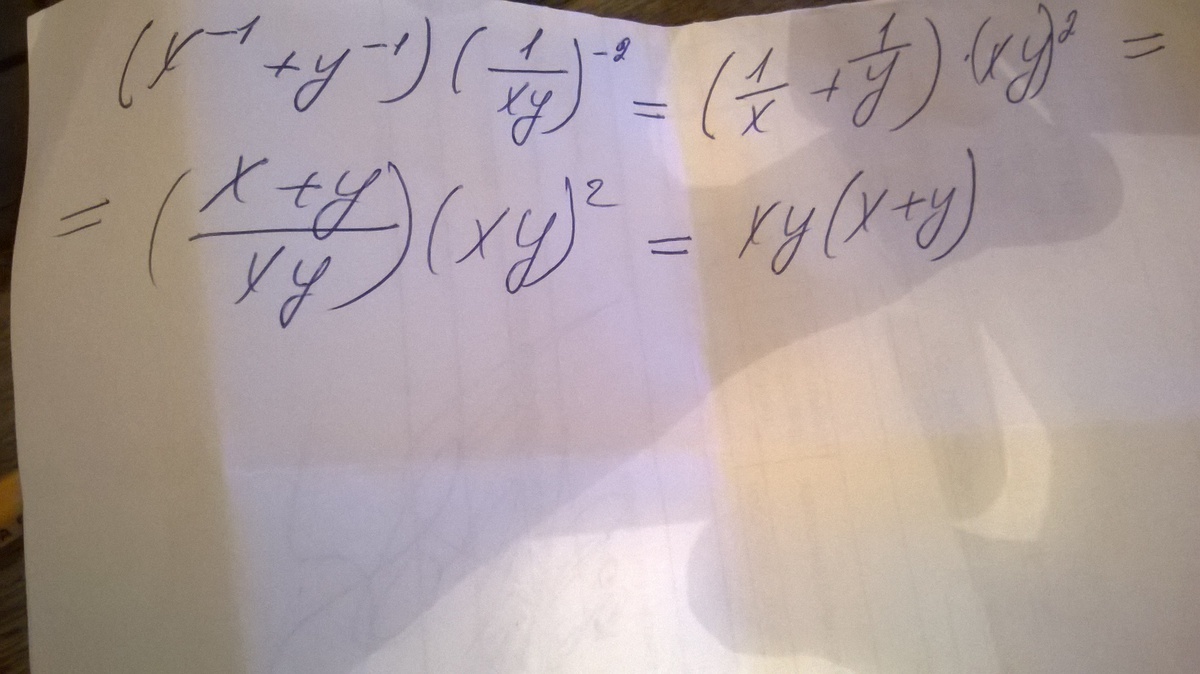 (x⁻¹ + y⁻¹) (1/xy)⁻² = (1/x + 1/y) · (xy)² =
= (x + y/xy) (xy)² = xy (x+y)